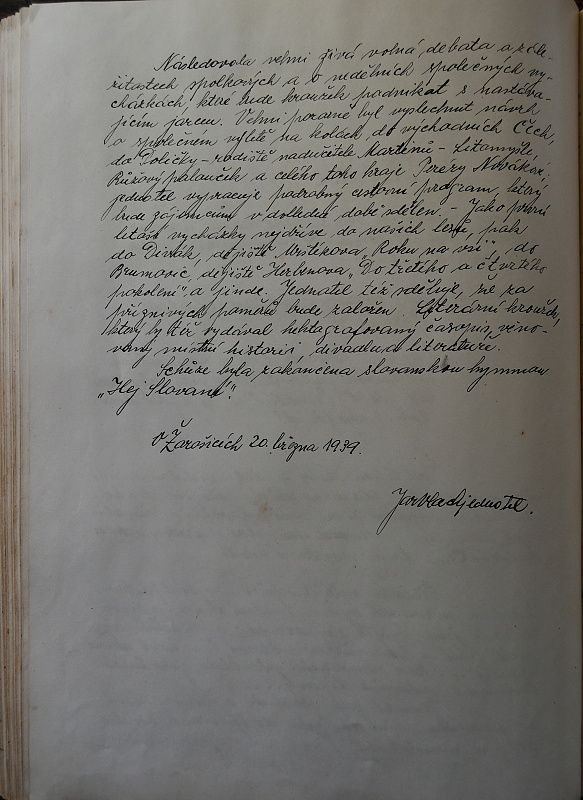 Následovala velmi živá volná debata o zále-
žitostech spolkových a o nedělních společných vy-
cházkách, které bude kroužek podnikat s nastáva-
jícím jarem. Velmi pozorně byl vyslechnut návrh
o společném výletě na kolách do východních Čech,
do Poličky - rodiště nadučitele Martině - Litomyšle,
Růžový palouček a celého toho kraje Terézy Novákové;
jednatel vypracuje podrobný cestovní program, který
bude zájemcům v dohledné době sdělen. - Jako první
letos vycházky nejdříve do našich lesů, pak
do Divák, dějiště Mrštíkova "Roku na vsi", do
Brumovic, dějiště Herbenova "Do třetího a čtvrtého
pokolení" a jinde. Jednatel též sděluje, že za
příznivých poměrů bude založen Literární kroužek,
který by též vydával hektografovaný časopis, věno-
vaný místní historii, divadlu a literatuře.
Schůze byla zakončena slovanskou hymnou
„Hej Slované".
V Žarošicích 20. března 1939.
jednatel.